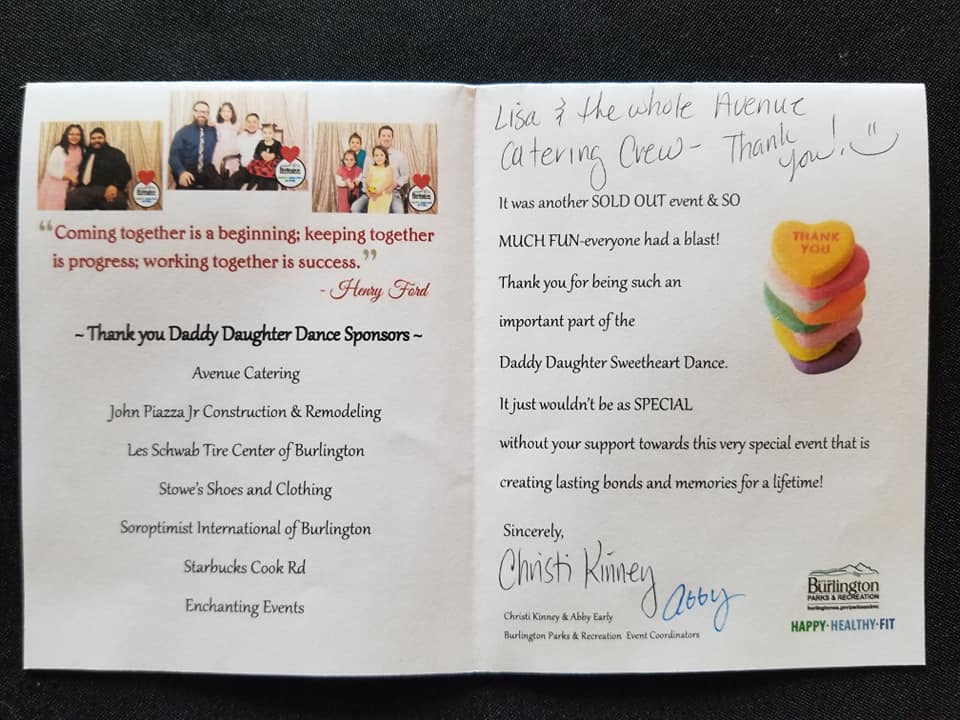 “Coming together is a beginning; keeping together
is progress; working together is success.”
- Henry Ford
~ Thank you Daddy Daughter Dance Sponsors ~
Avenue Catering
John Piazza Jr Construction & Remodeling
Les Schwab Tire Center of Burlington
Stowe's Shoes and Clothing
Soroptimist International of Burlington
Starbucks Cook Rd
Enchanting Events
Lisa & the whole Avenue
Catering Crew - Thank
you!
It was another SOLD OUT event & SO
MUCH FUN-everyone had a blast!
THANK
YOU
Thank you for being such an
important part of the
Daddy Daughter Sweetheart Dance.
It just wouldn't be as SPECIAL
without your support towards this very special event that is
creating lasting bonds and memories for a lifetime!
Sincerely,
Christi Kinney
Abby
Christi Kinney & Abby Early
Burlington Parks & Recreation Event Coordinators
Burlington
PARKS & RECREATION
HAPPY·HEALTHY·FIT